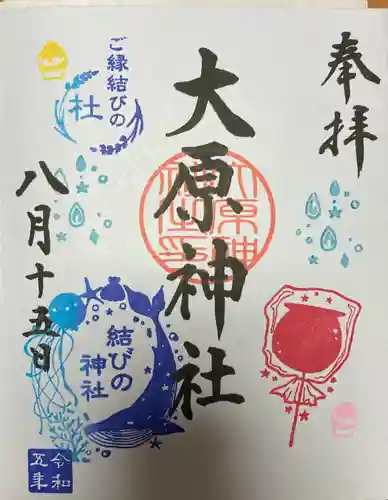 奉拝
大原神社
ご縁結びの
杜
八月十五日
結びの
神社
令和
五年